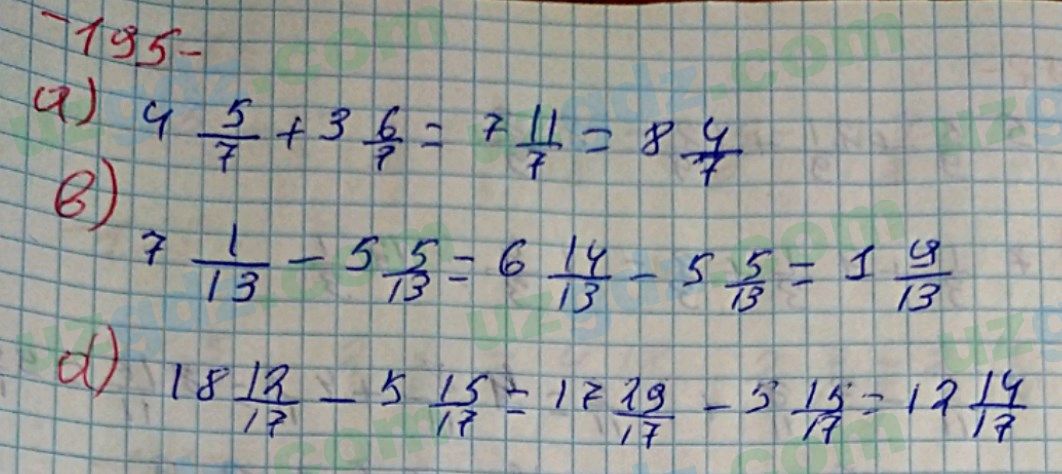 -195-
a) 4 5/7 + 3 6/7 = 7 11/7 = 8 4/7
b)
7 1/13 - 5 5/13 = 6 14/13 - 5 5/13 = 1 9/13
d) 18 12/17 - 5 15/17 = 17 29/17 - 5 15/17 = 12 14/17